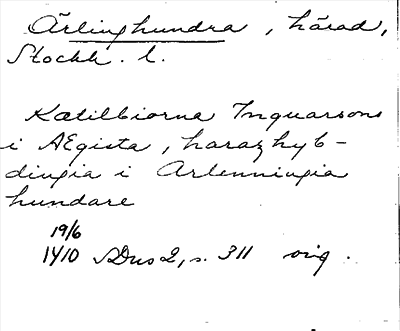 Ärlinghundra, härad,
Stockh. l.
Katilbiorna Inguarsons
i AEgista, haraz hyb-
dingia i Arlenningia
hundare
19/6
1410 SDns 2, s. 311 orig.